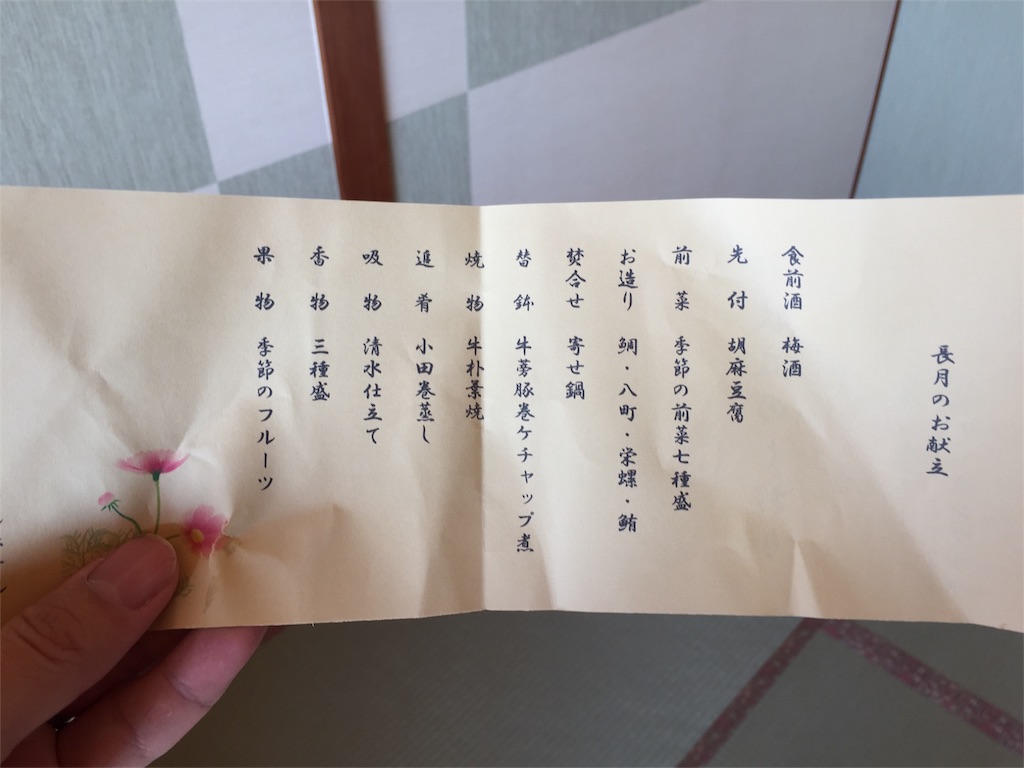 長月のお献立
食前酒 梅酒
先付 胡麻豆腐
前菜 季節の前菜七種盛
お造り 鯛・八町・栄螺・鮪
焚合せ 寄せ鍋
替鉢 牛蒡豚巻ケチャップ煮
焼物 牛朴葉焼
追肴 小田巻蒸し
吸物 清水仕立て
香物 三種盛
果物 季節のフルーツ